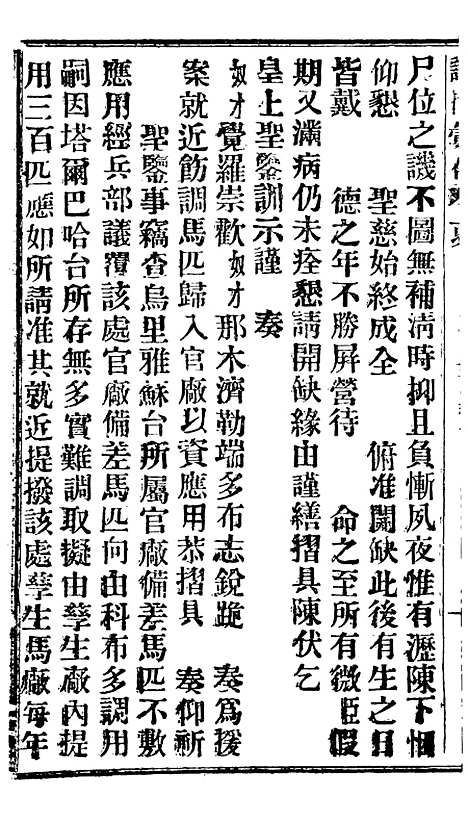 尸位之譏不圖無補淸時抑且負慚夙夜惟有瀝陳下悃
仰懇　聖慈始終成全　俯准開缺此後有生之日
皆戴　德之年不勝屏營待　命之至所有微臣假
期又滿病仍未痊懇請開缺緣由謹繕摺具陳伏乞
皇上聖鑒訓示謹　奏
奴才覺羅崇歡奴才那木濟勒端多布志銳跪　奏爲援
案就近飭調馬匹歸入官廠以資應用恭摺具　奏仰祈
聖鑒事竊查烏里雅蘇台所屬官廠備差馬匹不敷
應用經兵部議覆該處官廠備差馬匹向由科布多調用
嗣因塔爾巴哈台所存無多實難調取擬由孳生廠內提
用三百匹應如所請准其就近提撥該處孳生馬廠每年